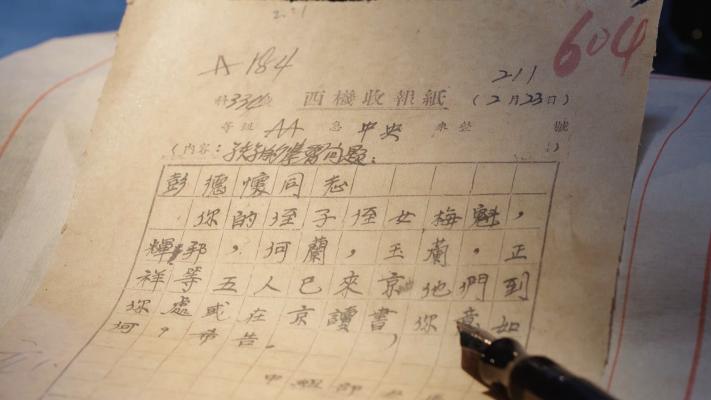 A 184
604
211
334 西機收報紙 (2月23日)
等級 AA 急 中央 號
(內容:孩子們學習问題。)
彭德懷同志
你的侄子侄女梅魁,
輝邦,何蘭,玉蘭,正
祥等五人已來京他們到
你處或在京讀書,你意如
何,希告。
中組部